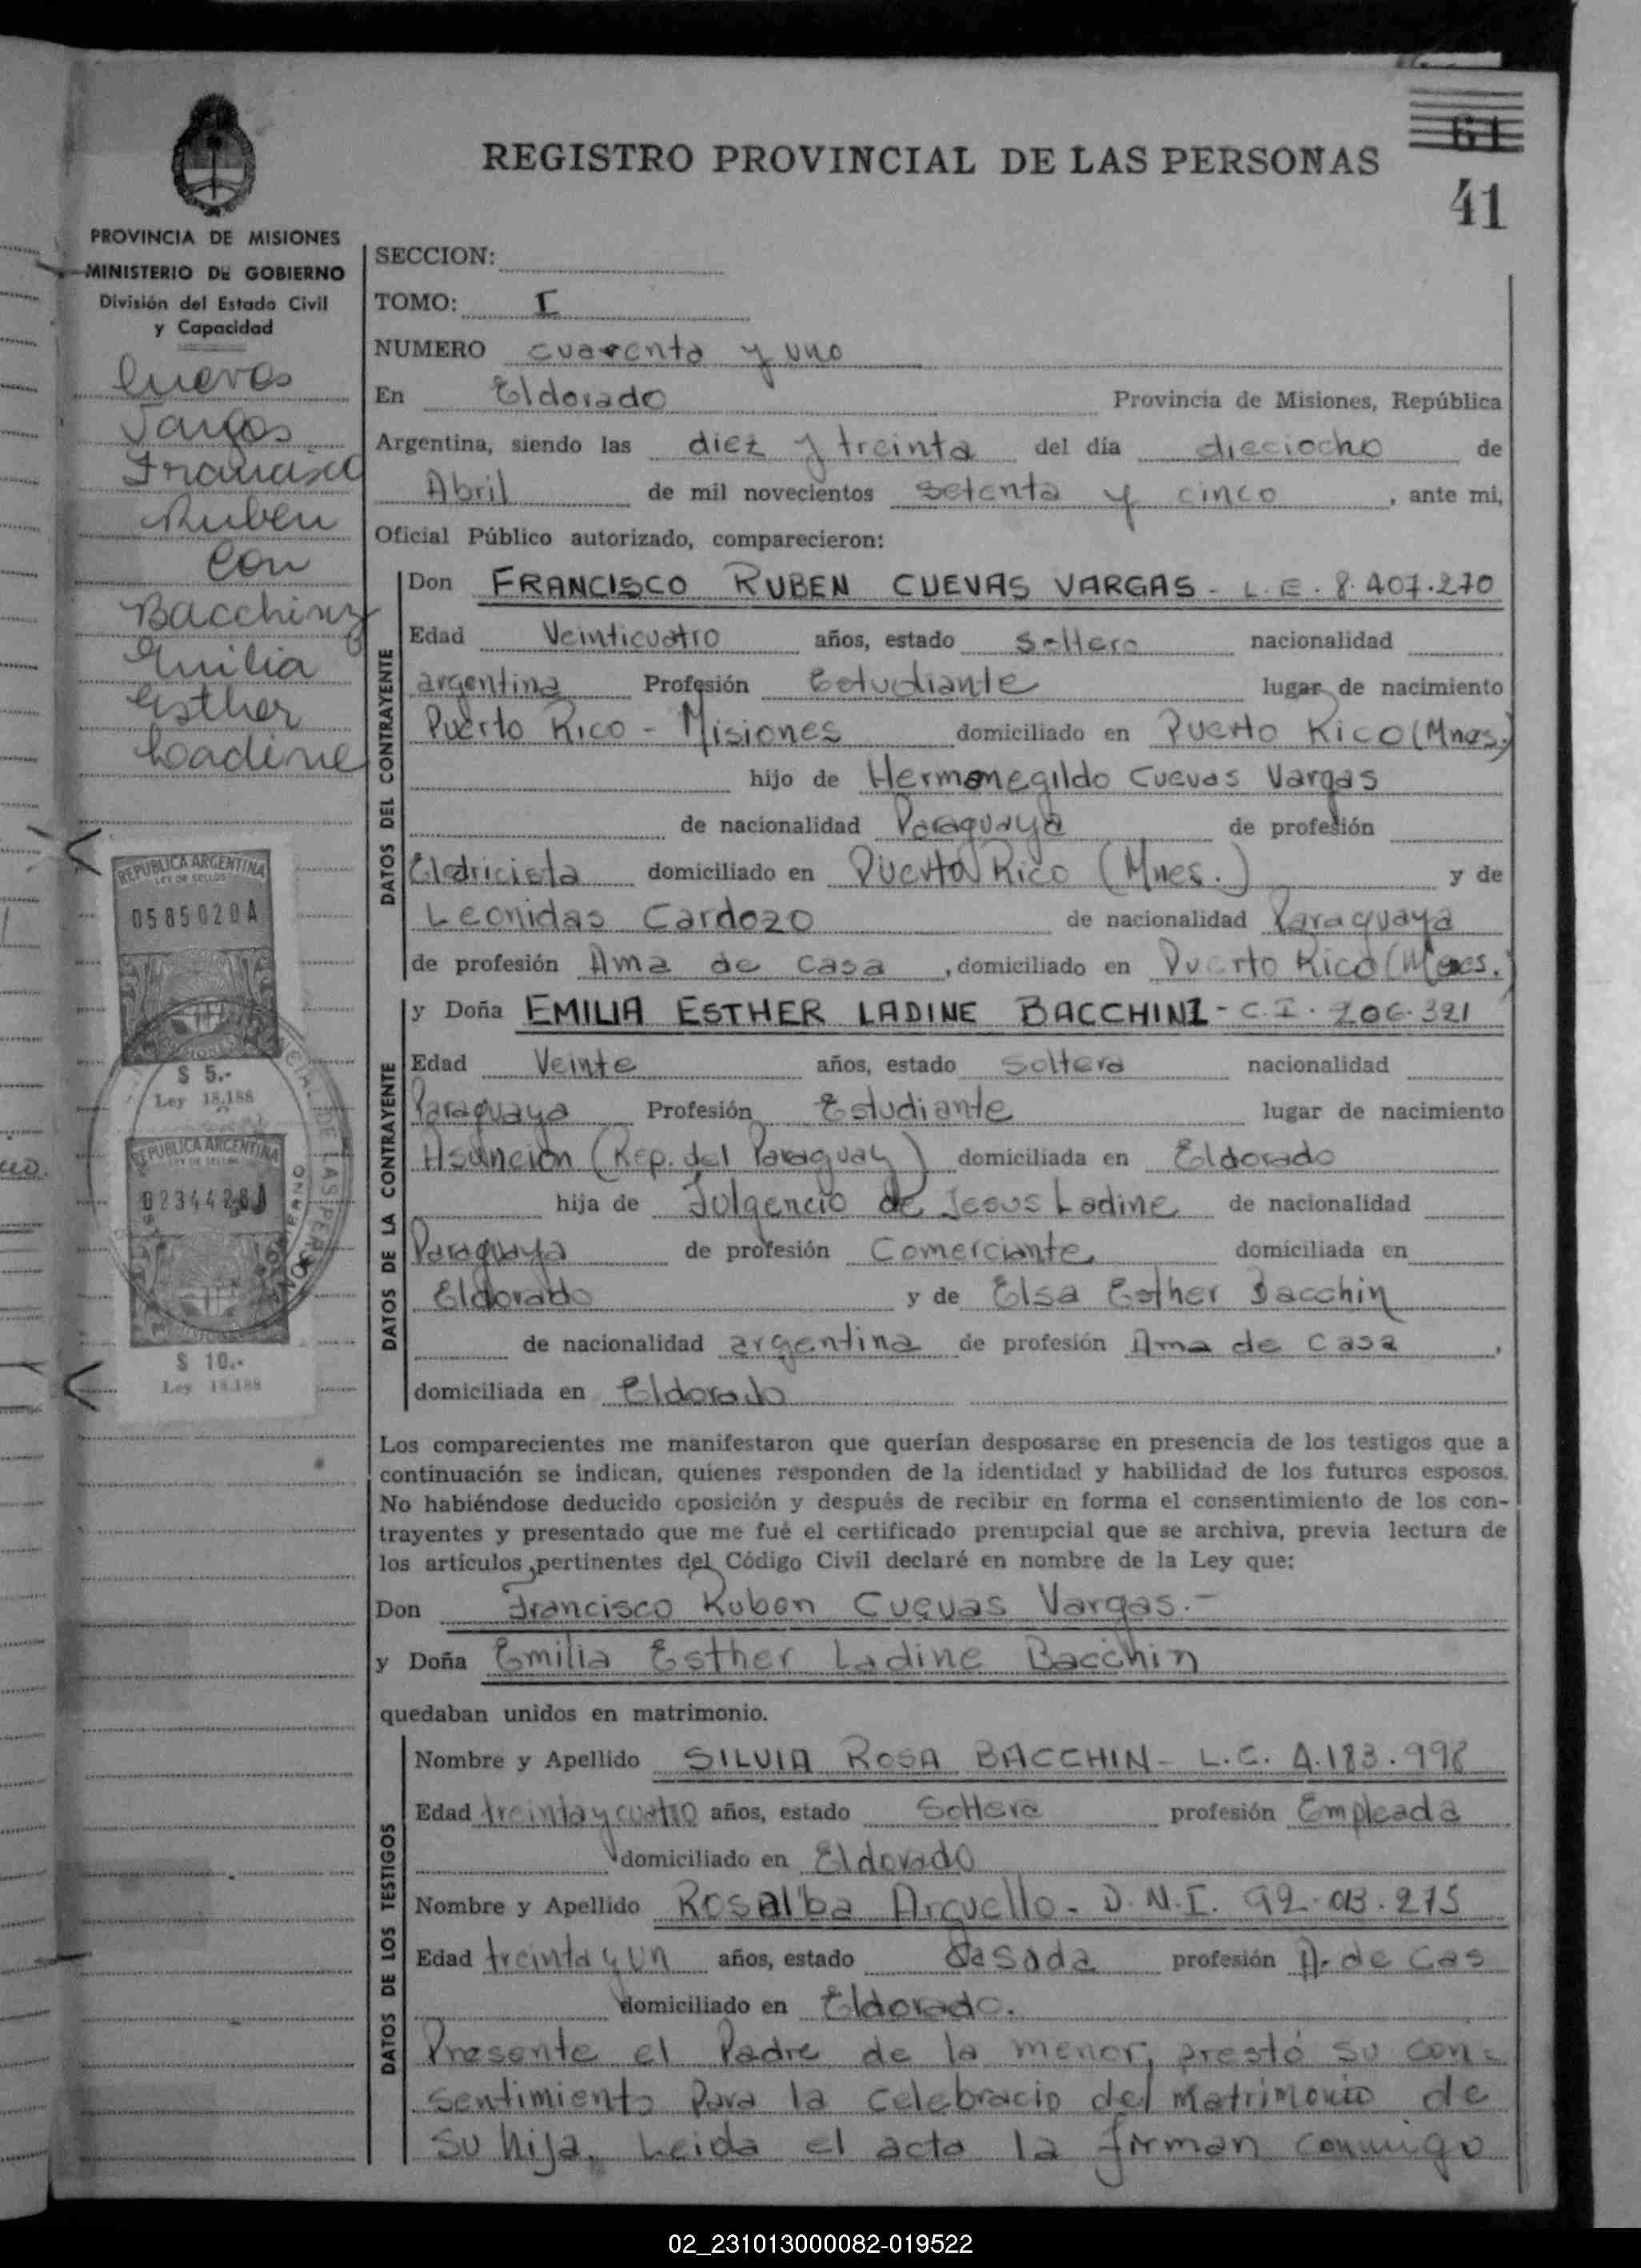 REGISTRO PROVINCIAL DE LAS PERSONAS
61
41
PROVINCIA DE MISIONES
MINISTERIO DE GOBIERNO
División del Estado Civil
y Capacidad
Cuevas
Vargas
Francisco
Ruben
Con
Bacchin y
Emilia
Esther
Ladine
REPUBLICA ARGENTINA
LEY DE SELLOS
0585020A
$ 5.-
Ley 18.188
REPUBLICA ARGENTINA
LEY DE SELLOS
$ 10.-
Ley 18.188
SECCION:
TOMO: I
NUMERO cuarenta y uno
En Eldorado Provincia de Misiones, República
Argentina, siendo las diez y treinta del día dieciocho de
Abril de mil novecientos setenta y cinco, ante mi,
Oficial Público autorizado, comparecieron:
DATOS DEL CONTRAYENTE
Don FRANCISCO RUBEN CUEVAS VARGAS - L.E. 8.407.270
Edad Veinticuatro años, estado soltero nacionalidad
argentina Profesión Estudiante lugar de nacimiento
Puerto Rico - Misiones domiciliado en Puerto Rico (Mnes.)
hijo de Hermenegildo Cuevas Vargas
de nacionalidad Paraguaya de profesión
Eletricista domiciliado en Puerto Rico (Mnes.) y de
Leonidas Cardozo de nacionalidad Paraguaya
de profesión Ama de casa, domiciliado en Puerto Rico (Mnes.)
DATOS DE LA CONTRAYENTE
y Doña EMILIA ESTHER LADINE BACCHIN - C.I. 206.321
Edad Veinte años, estado Soltera nacionalidad
Paraguaya Profesión Estudiante lugar de nacimiento
Asunción (Rep. del Paraguay) domiciliada en Eldorado
hija de Fulgencio de Jesus Ladine de nacionalidad
Paraguaya de profesión Comerciante domiciliada en
Eldorado y de Elsa Esther Bacchin
de nacionalidad argentina de profesión Ama de casa,
domiciliada en Eldorado
Los comparecientes me manifestaron que querían desposarse en presencia de los testigos que a
continuación se indican, quienes responden de la identidad y habilidad de los futuros esposos.
No habiéndose deducido oposición y después de recibir en forma el consentimiento de los con-
trayentes y presentado que me fué el certificado prenupcial que se archiva, previa lectura de
los artículos pertinentes del Código Civil declaré en nombre de la Ley que:
Don Francisco Ruben Cuevas Vargas.-
y Doña Emilia Esther Ladine Bacchin
quedaban unidos en matrimonio.
DATOS DE LOS TESTIGOS
Nombre y Apellido SILVIA ROSA BACCHIN - L.C. 4.183.998
Edad treinta y cuatro años, estado Soltera profesión Empleada
domiciliado en Eldorado
Nombre y Apellido Rosalba Arguello - D.N.I. 92.013.275
Edad treinta y un años, estado Casada profesión A. de Cas
domiciliado en Eldorado.
Presente el Padre de la menor, prestó su con-
sentimiento para la celebracio del Matrimonio de
su hija. Leida el acta la firman conmigo
02_231013000082-019522